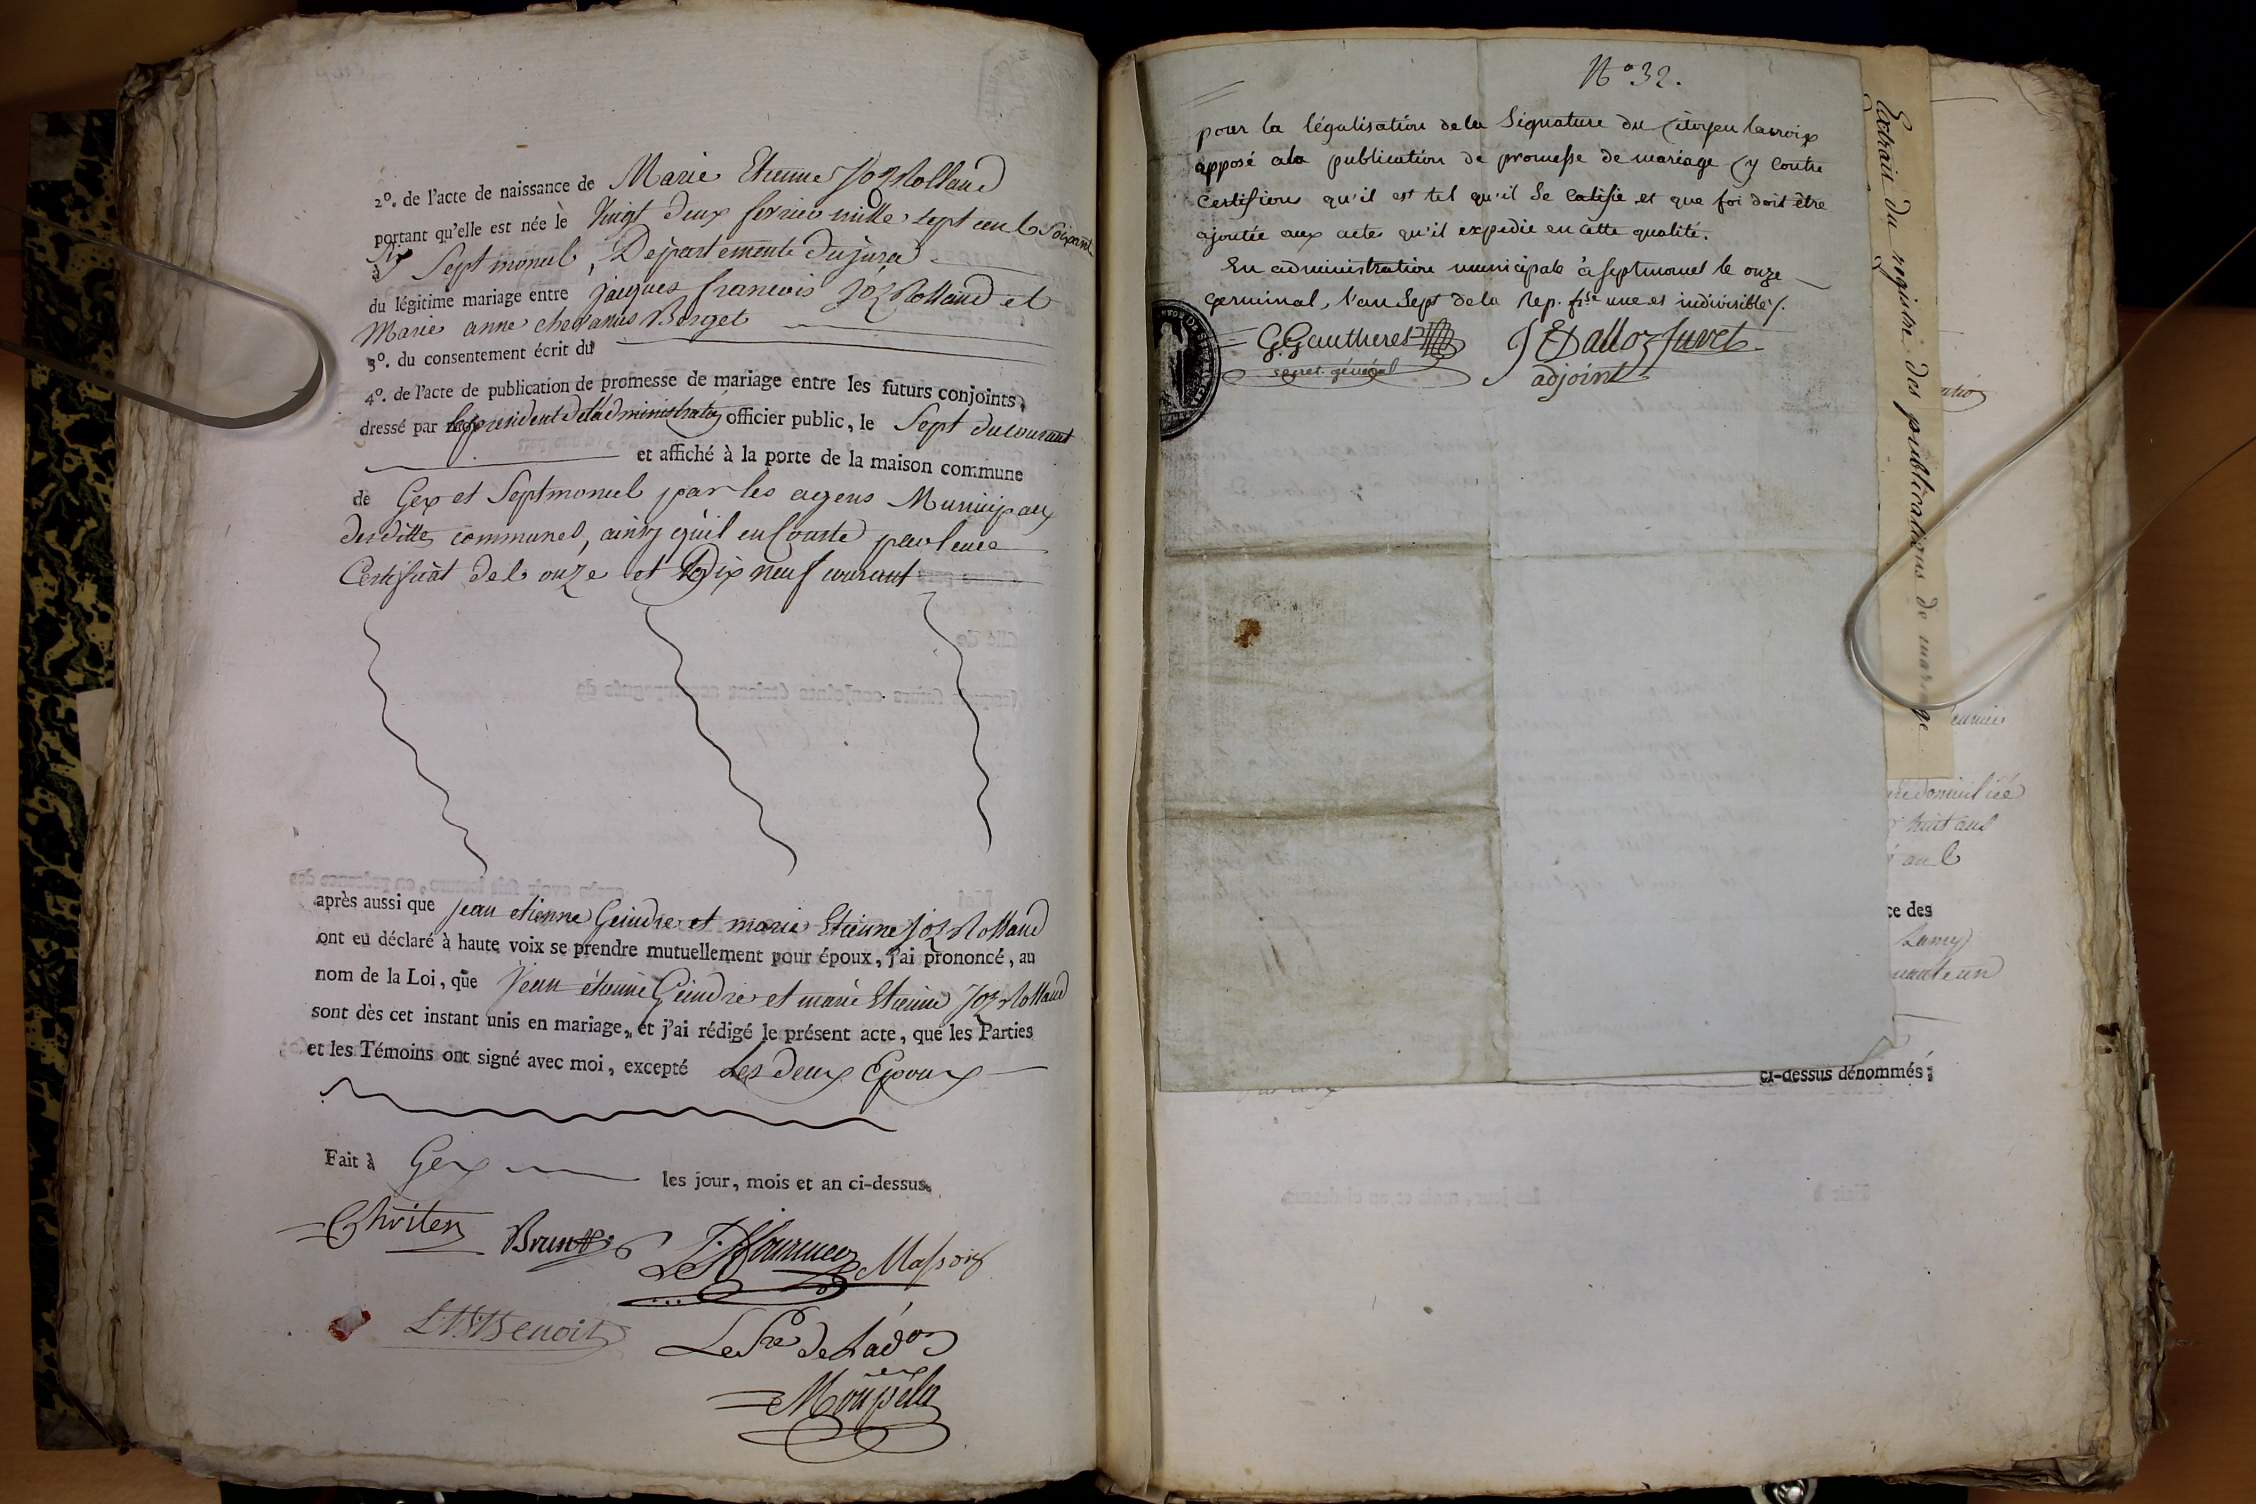 2°. de l'acte de naissance de Marie Etienne Joz Rolland
portant qu'elle est née le Vingt deux fevrier mille sept cent Soixante
Six
à Septmoncel, Departement du jura
du légitime mariage entre jacques francois Joz Rolland et
Marie anne chevassus Borget
3°. du consentement écrit du
4°. de l'acte de publication de promesse de mariage entre les futurs conjoints,
dressé par le president de l'administration officier public, le Sept du courant
et affiché à la porte de la maison commune
de Gex et Septmoncel par les agens Municipaux
desdittes communes, ainsy qu'il en Conste par leurs
Certificat des onze et Dix neuf courant
après aussi que jean etienne Geindre et marie Etienne Joz Rolland
ont eu déclaré à haute voix se prendre mutuellement pour époux, j'ai prononcé, au
nom de la Loi, que Jean étienne Geindre et marie Etienne Joz Rolland
sont dès cet instant unis en mariage, et j'ai rédigé le présent acte, que les Parties
et les Témoins ont signé avec moi, excepté Les deux Epoux
Fait à Gex les jour, mois et an ci-dessus.
Masson
Benoit
Le Pre de L'adon
N° 32.
pour la légalisation de la Signature du Citoyen lacroix
apposé a la publication de promesse de mariage cy Contre
Certifions qu'il est tel qu'il se Calisie et que foi doit être
ajoutée aux actes qu'il expedie en cette qualité.
En administration municipale à septmoncel le onze
Germinal, l'an Sept de la Rep. fse une et indivisible /.
G. Gauthier
secret. général
Dalloz Juvet
adjoint
Extrait du registre des publications de mariage
domiciliée
huit ans
ce des
ci-dessus dénommés ;